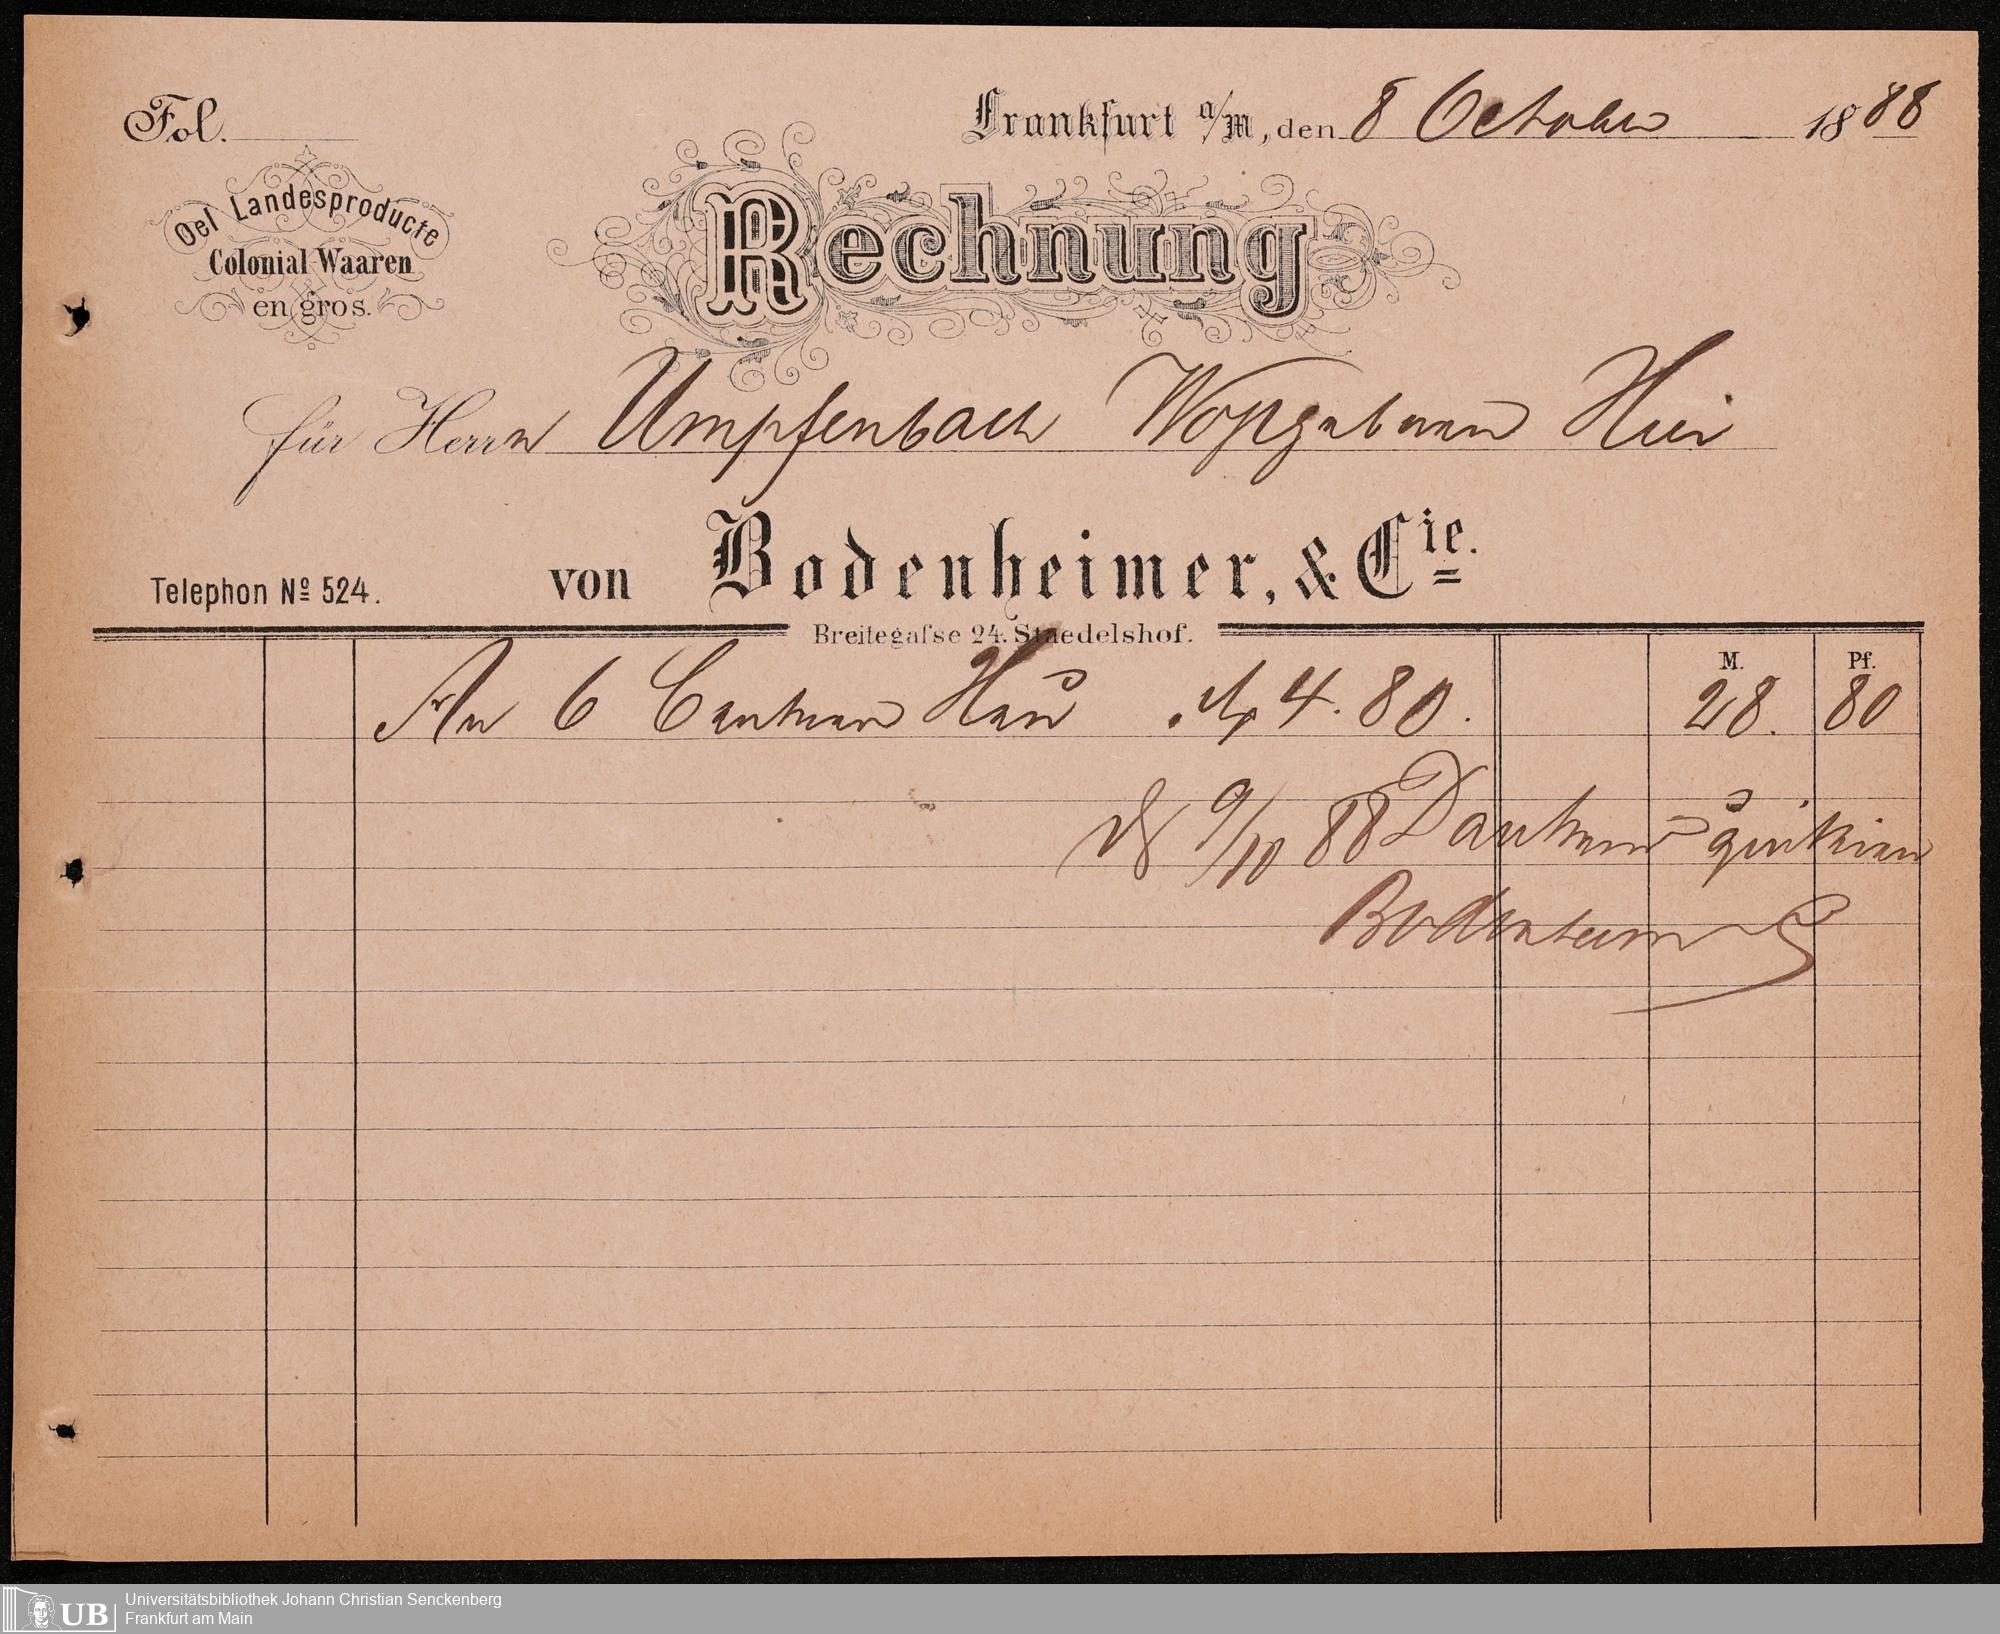 Fol.
Frankfurt a/M, den 8 October 1888
Oel Landesproducte
Colonial Waaren
en gros.
Rechnung
für Herrn Umpfenbach Hier
Telephon No 524.
von Bodenheimer, & Cie.
Breitegaſse 24. Staedelshof.
M. Pf.
An 6 Centner Heu M 4.80. 28. 80
9/10 88 Dankend quittirt
Bodenheimer
Universitätsbibliothek Johann Christian Senckenberg
UB Frankfurt am Main